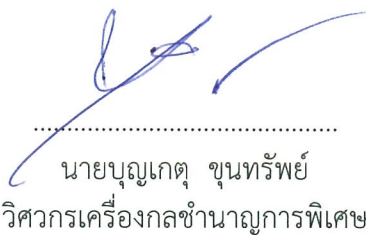 .............................................
นายบุญเกตุ ขุนทรัพย์
วิศวกรเครื่องกลชำนาญการพิเศษ